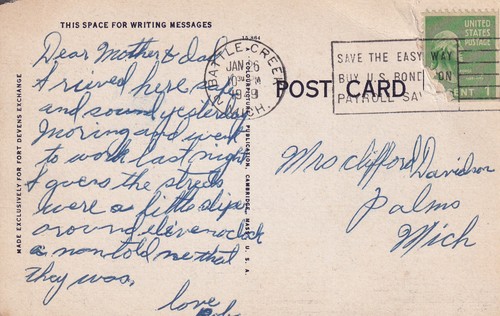 THIS SPACE FOR WRITING MESSAGES
Dear Mother & dad
Arived here safe
and sound yesterday
Moring and went
to work last night
I guess the streets
were a little slipey
around eleven oclock
a man told me that
they was.
love
MADE EXCLUSIVELY FOR FORT DEVENS EXCHANGE
COLOURPICTURE PUBLICATION, CAMBRIDGE, MASS. U. S. A.
BATTLE CREEK
JAN 26
MICH.
POST CARD
SAVE THE EASY WAY
BUY U.S. BONDS ON
PAYROLL SAV
UNITED STATES
POSTAGE
CENT 1
Mrs Clifford Davidson
Palms
Mich